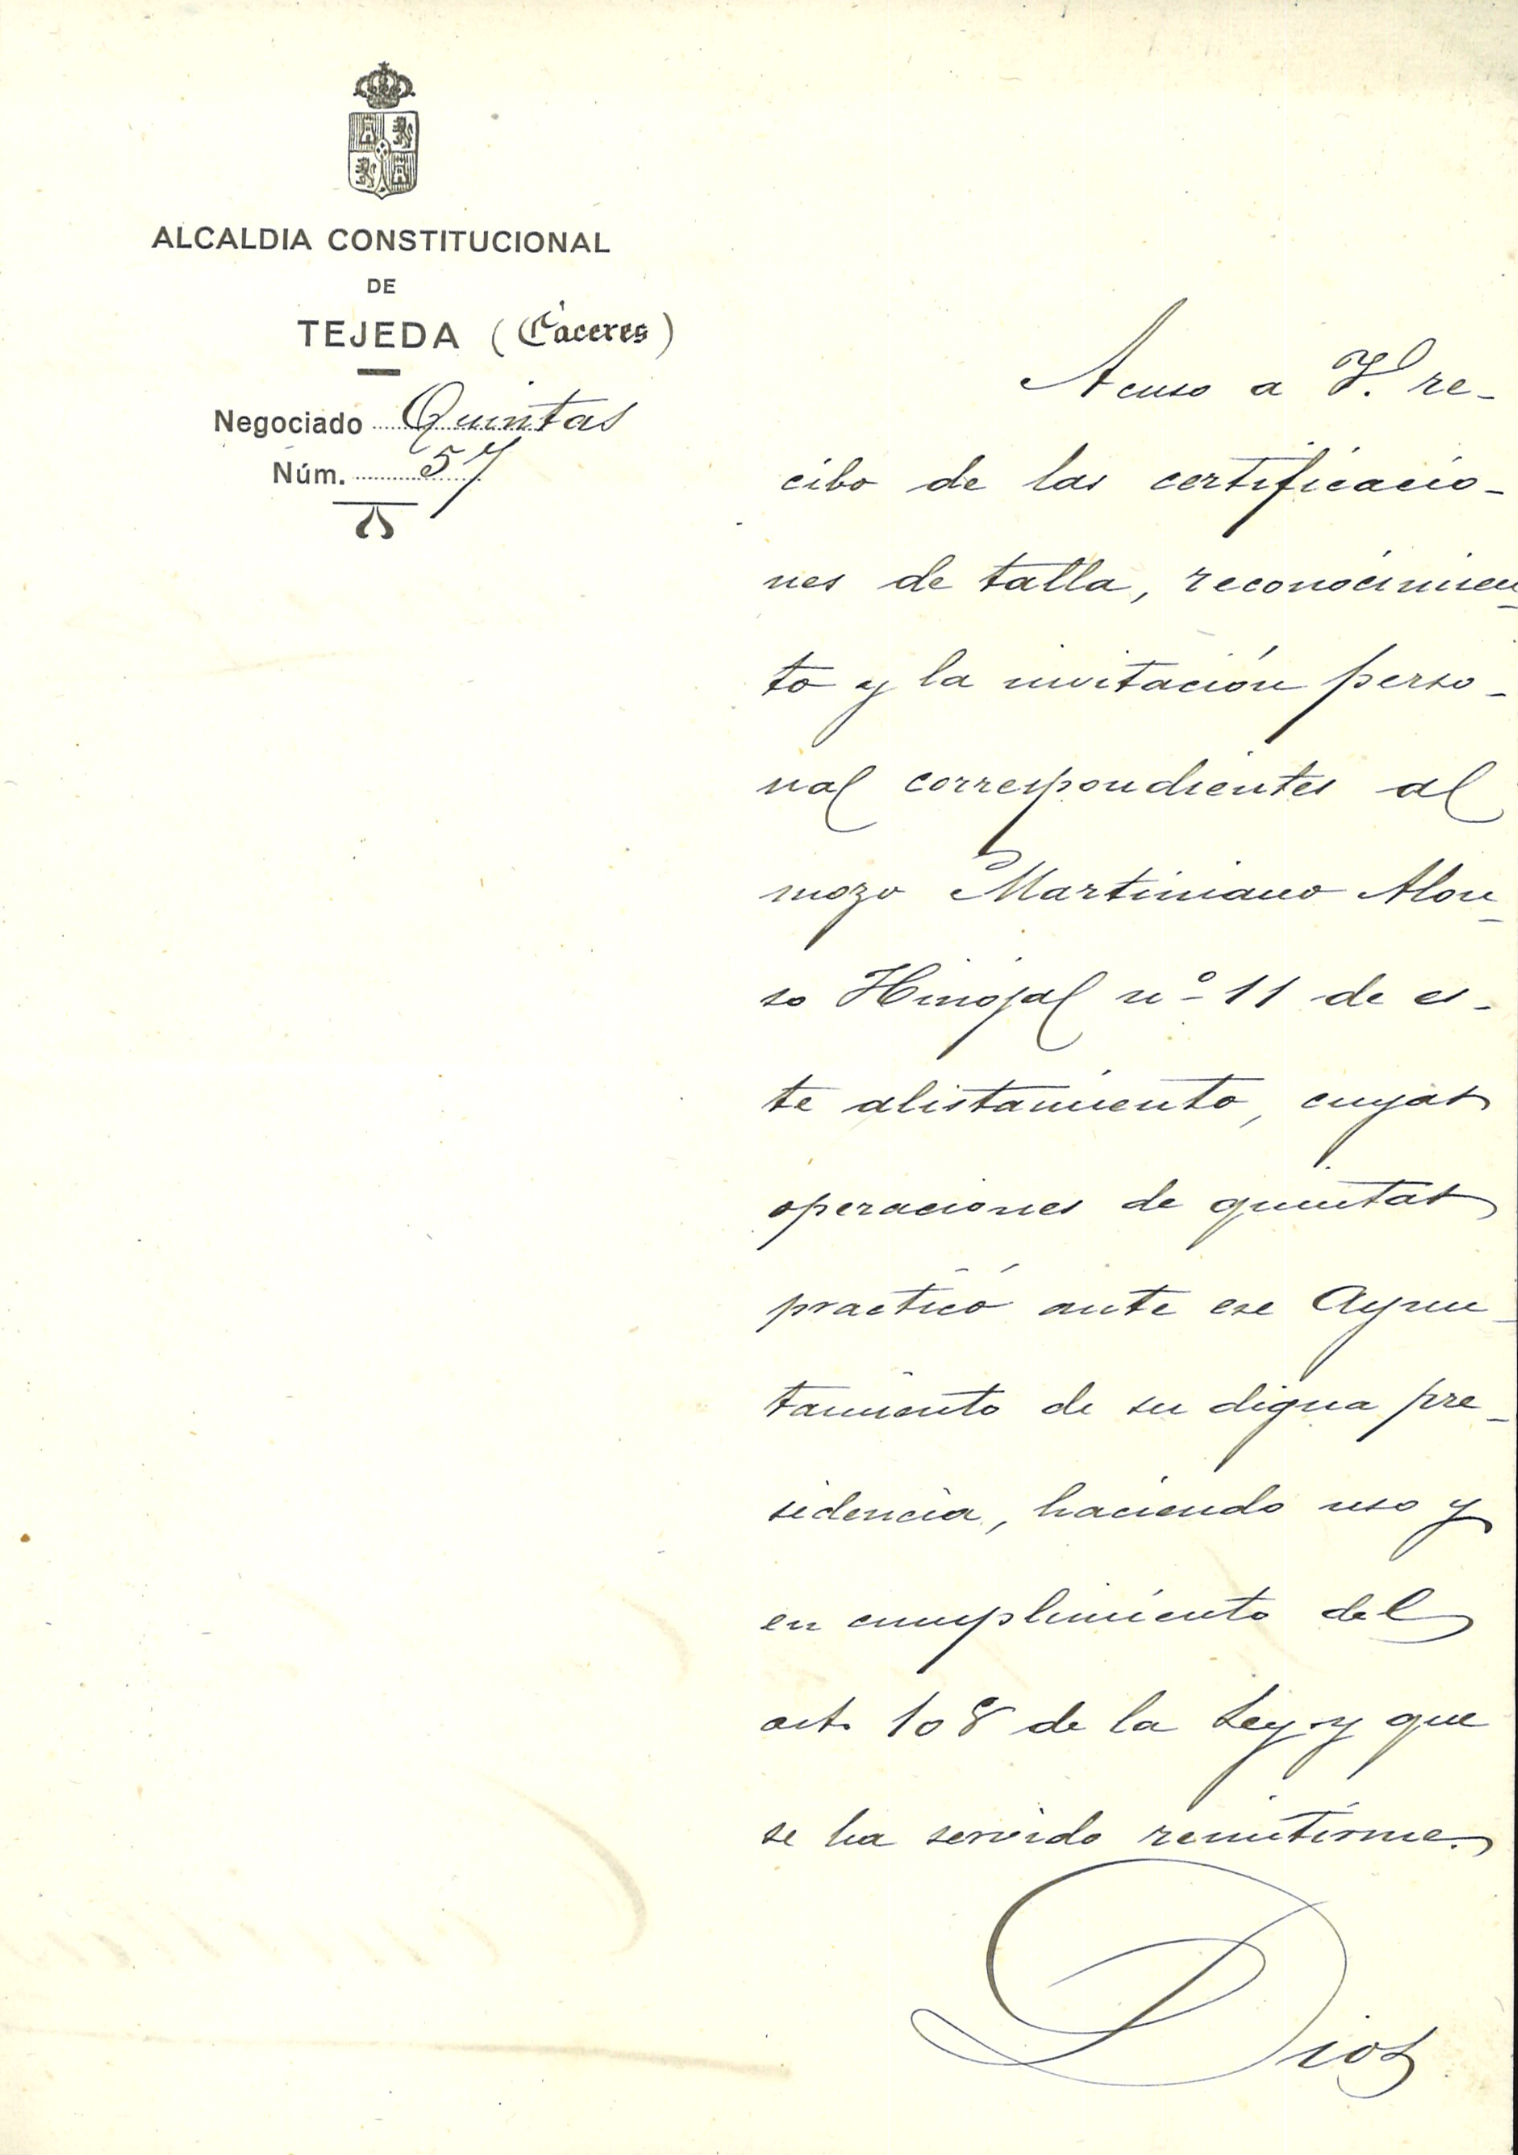 ALCALDIA CONSTITUCIONAL
DE
TEJEDA (Cáceres)
Negociado Quintas
Núm. 57
Acuso a V. re-
cibo de las certificacio-
nes de talla, reconocimien-
to y la invitación perso-
nal correspondientes al
mozo Martiniano Alon-
so Hinojal nº 11 de es-
te alistamiento, cuyas
operaciones de quintas
practicó ante ese Ayun-
tamiento de su digna pre-
sidencia, haciendo uso y
en cumplimiento del
art. 108 de la Ley y que
se ha servido remitirme.
Dios